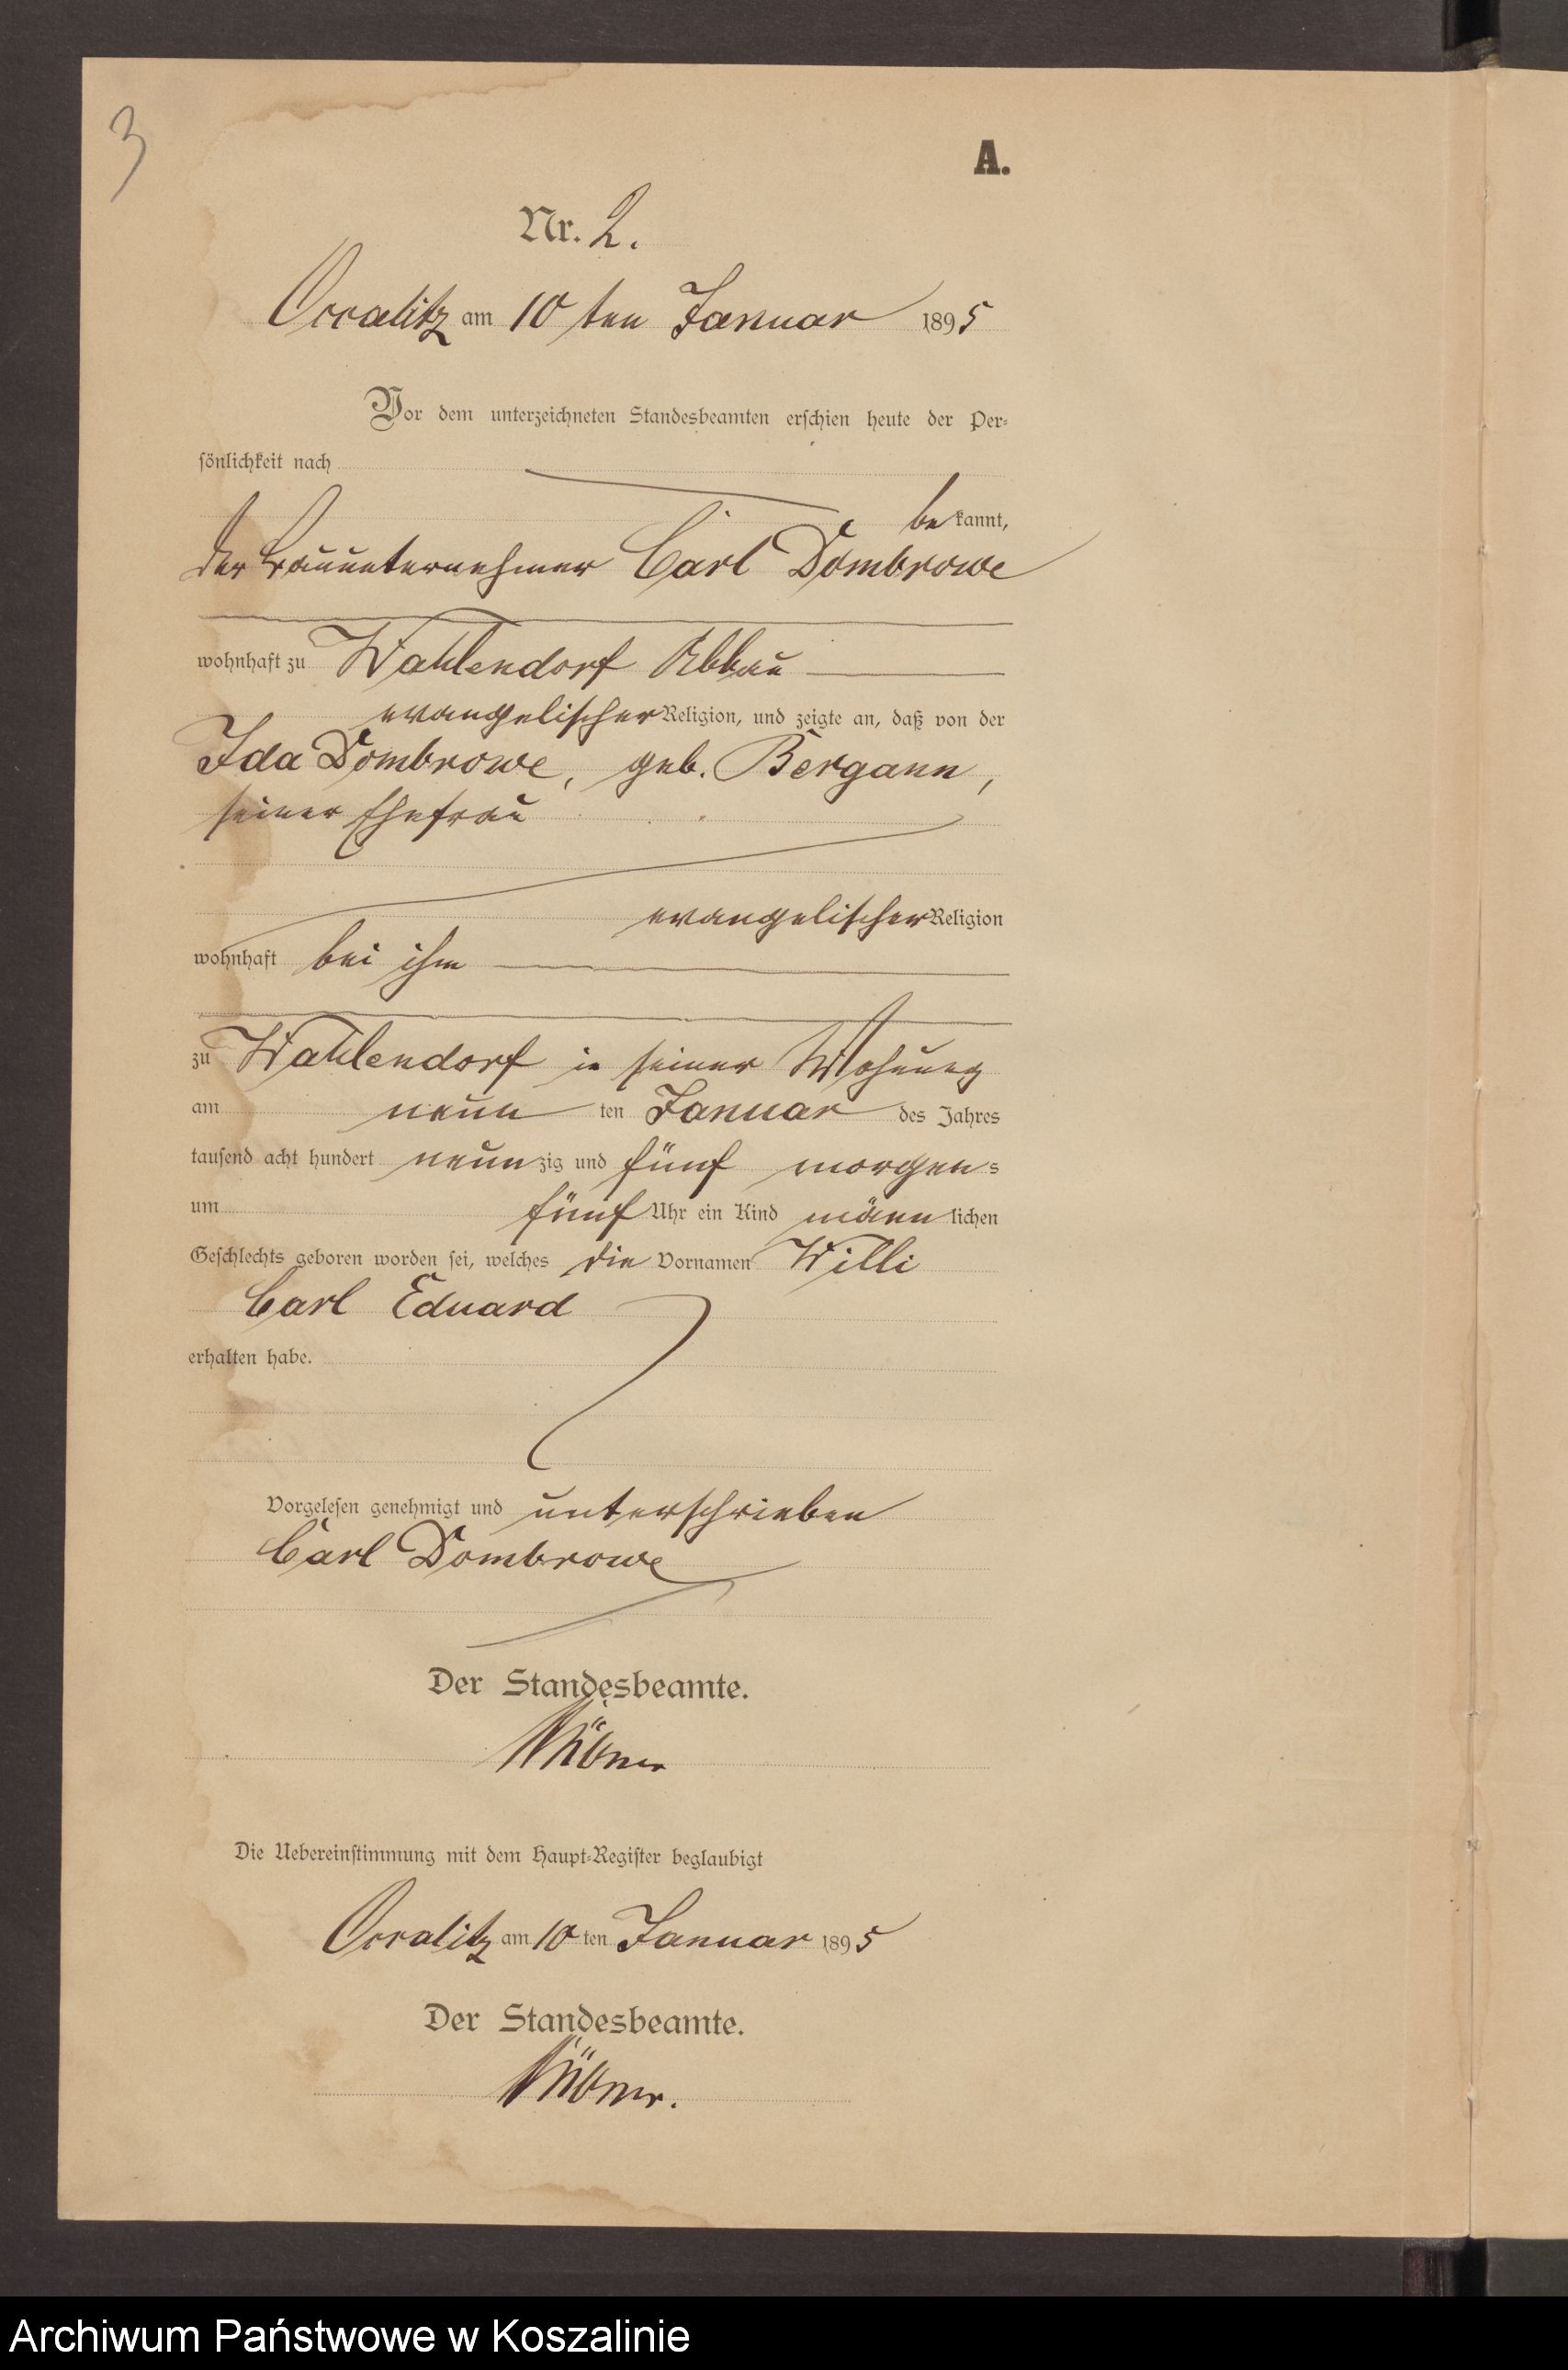 3
A.
Nr. 2.
Occalitz am 10 ten Januar 1895
Vor dem unterzeichneten Standesbeamten erschien heute der Per-
sönlichkeit nach
bekannt,
der Bauunternehmer Carl Dombrowe
wohnhaft zu Wahlendorf Abbau
evangelischer Religion, und zeigte an, daß von der
Ida Dombrowe, geb. Bergann,
seiner Ehefrau
evangelischer Religion
wohnhaft bei ihm
zu Wahlendorf in seiner Wohnung
am neun ten Januar des Jahres
tausend acht hundert neunzig und fünf morgens
um fünf Uhr ein Kind männlichen
Geschlechts geboren worden sei, welches die Vornamen Willi
Carl Eduard
erhalten habe.
Vorgelesen genehmigt und unterschrieben
Carl Dombrowe
Der Standesbeamte.
Die Uebereinstimmung mit dem Haupt-Register beglaubigt
Occalitz am 10 ten Januar 1895
Der Standesbeamte.
Archiwum Państwowe w Koszalinie